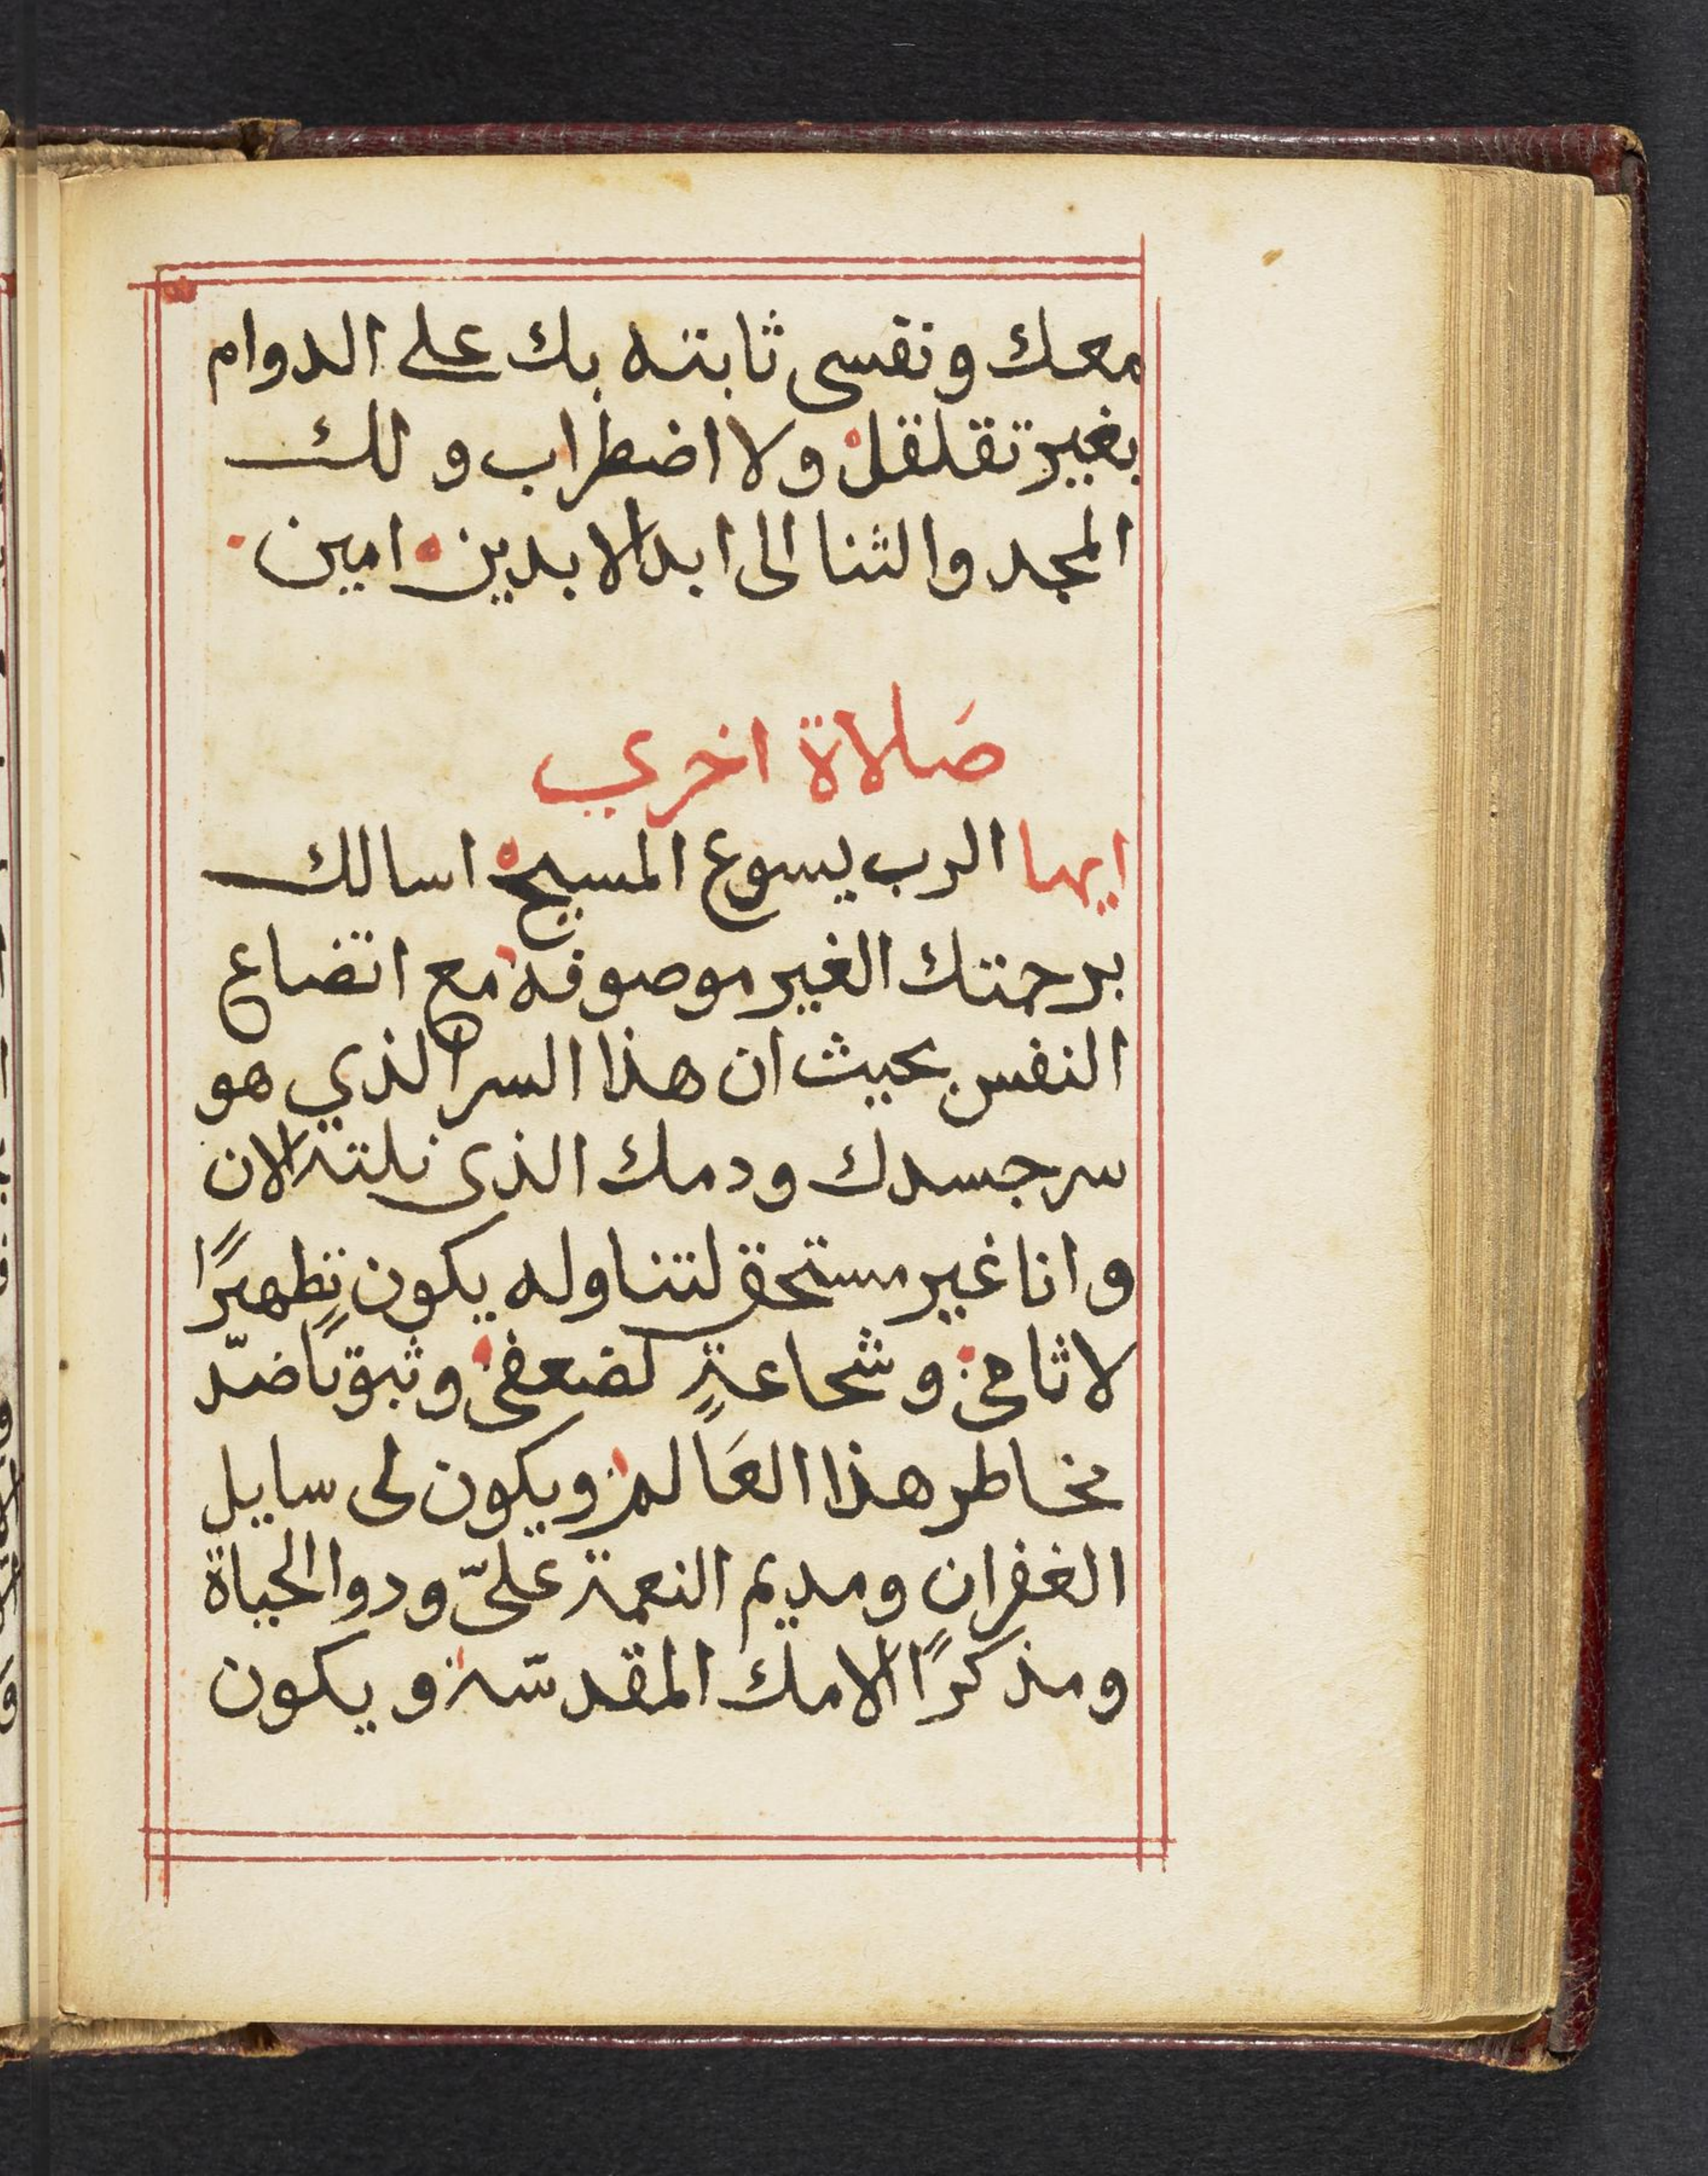 معك ونفسى ثابته بك على الدوام
بغير تقلقل ولا اضطراب ولك
المجد والثنا الى ابد الابدين امين
صَلاة اخري
ايها الرب يسوع المسيح اسالك
برحمتك الغير موصوفه مع اتضاع
النفس بحيث ان هذا السر الذي هو
سر جسدك ودمك الذى نلته الان
وانا غير مستحق لتناوله يكون تطهيرًا
لاثامى وشجاعةٍ لضعفى وثبوتًا ضدّ
مخاطر هذا العَالم ويكون لى سايل
الغفران ومديم النعمة علىّ ودوا الحياة
ومذكرًا الامك المقدسّة ويكون